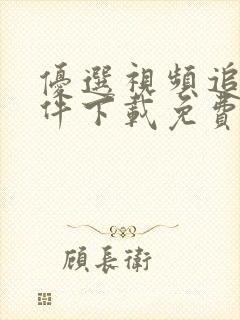 優選視頻追
件下載免費
顧長衛